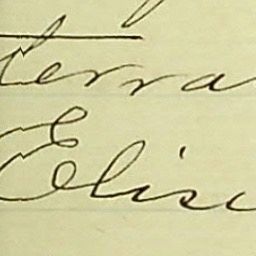 terra
Elise